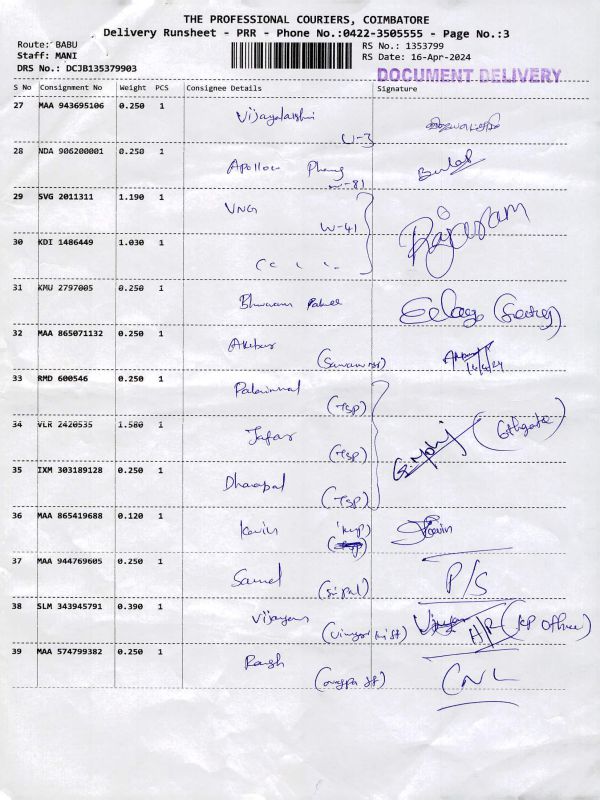 THE PROFESSIONAL COURIERS, COIMBATORE
Delivery Runsheet - PRR - Phone No.:0422-3505555 - Page No.:3
Route: BABU
Staff: MANI
DRS No.: DCJB135379903
RS No.: 1353799
RS Date: 16-Apr-2024
DOCUMENT DELIVERY
S No Consignment No Weight PCS Consignee Details Signature
27 MAA 943695106 0.250 1 Vijayalakshmi
U-3
28 NDA 906200001 0.250 1 Apollo
W-81
29 SVG 2011311 1.190 1 VNG
W-41
Rajaram
30 KDI 1486449 1.030 1
31 KMU 2797005 0.250 1
32 MAA 865071132 0.250 1 Akbar
16/4/24
33 RMD 600546 0.250 1
(TSP)
34 VLR 2420535 1.580 1 Jafar
(TSP)
35 IXM 303189128 0.250 1 Dhanapal
(TSP)
36 MAA 865419688 0.120 1 Kavin Kavin
37 MAA 944769605 0.250 1
P/S
38 SLM 343945791 0.390 1 H/R (KP Office)
39 MAA 574799382 0.250 1
CNL